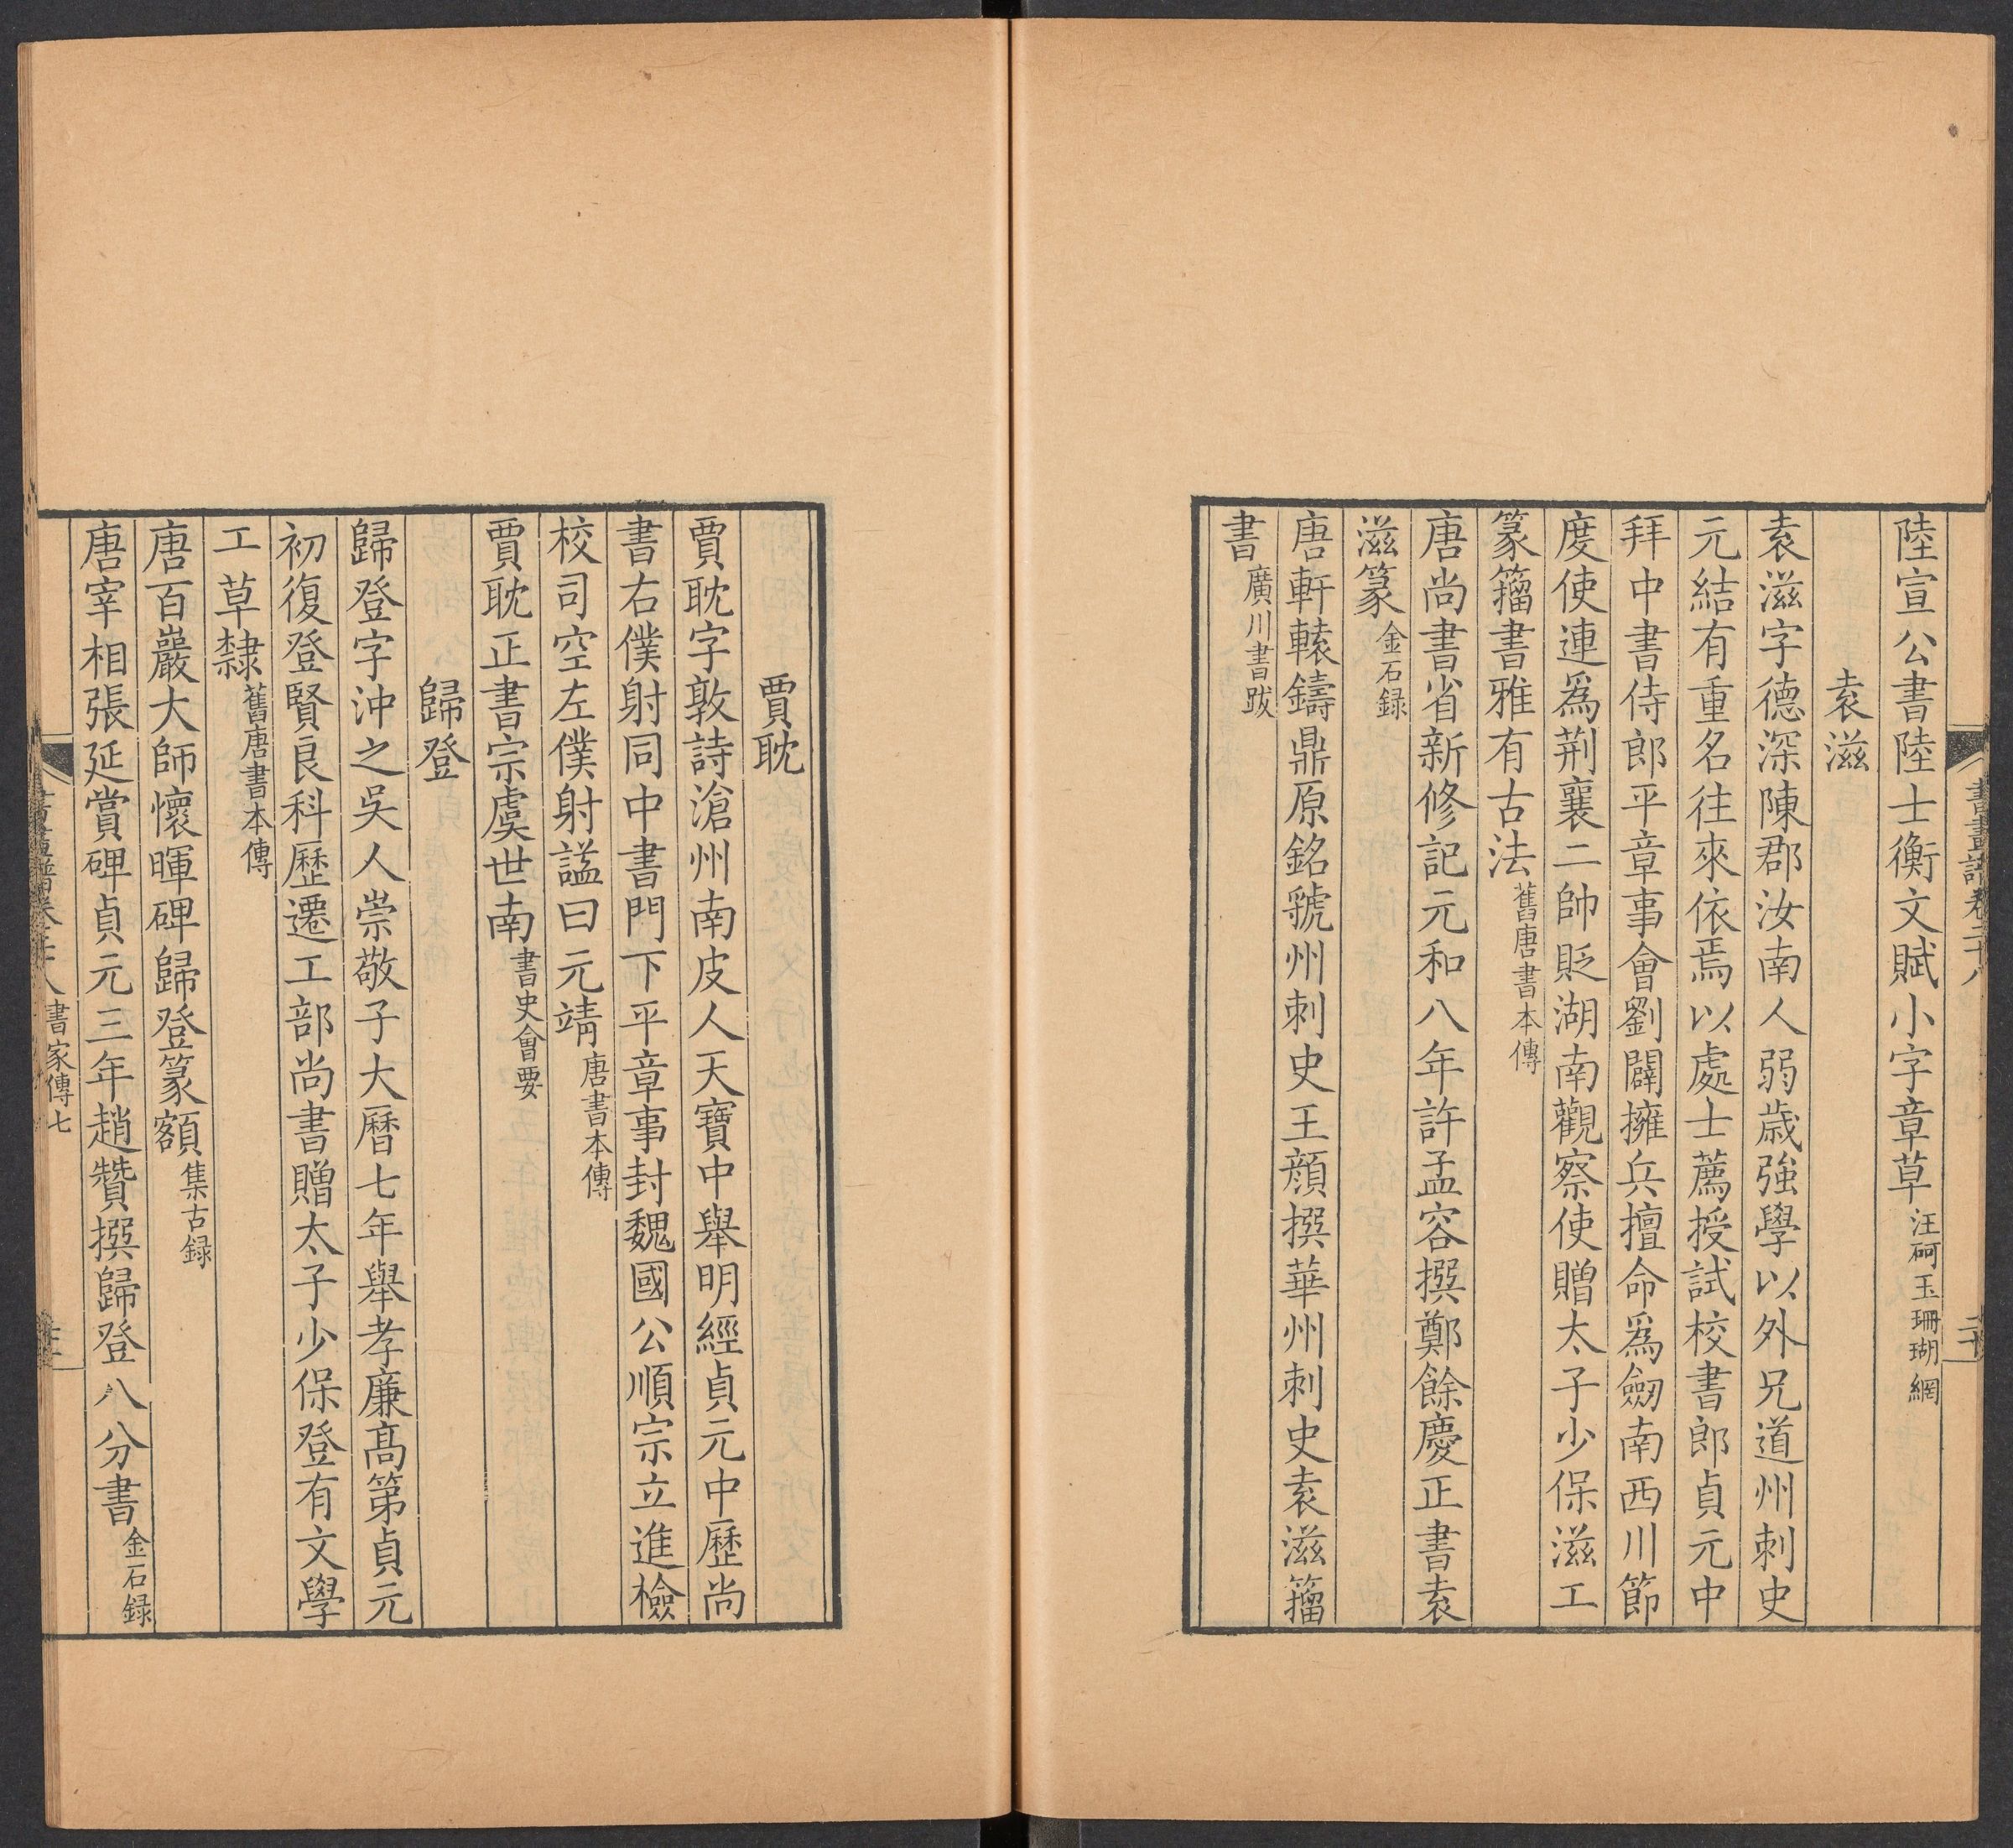 陸宣公書陸士衡文賦小字章草汪砢玉珊瑚網
袁滋
袁滋字德深陳郡汝南人弱歳強學以外兄道州刺史
元結有重名往來依焉以處士薦授試校書郎貞元中
拜中書侍郎平章事會劉闢擁兵擅命爲劒南西川節
度使連爲荆襄二帥貶湖南觀察使贈太子少保滋工
篆籀書雅有古法舊唐書本傳
唐尚書省新修記元和八年許孟容撰鄭餘慶正書袁
滋篆金石録
唐軒轅鑄鼎原銘虢州刺史王顔撰華州刺史袁滋籀
書廣川書跋
賈耽
賈耽字敦詩滄州南皮人天寶中舉明經貞元中歴尚
書右僕射同中書門下平章事封魏國公順宗立進檢
校司空左僕射謚曰元靖唐書本傳
賈耽正書宗虞世南書史會要
歸登
歸登字沖之吳人崇敬子大曆七年舉孝廉髙第貞元
初復登賢良科歴遷工部尚書贈太子少保登有文學
工草隸舊唐書本傳
唐百巖大師懷暉碑歸登篆額集古録
唐宰相張延賞碑貞元三年趙贊撰歸登八分書金石録
書家傳七